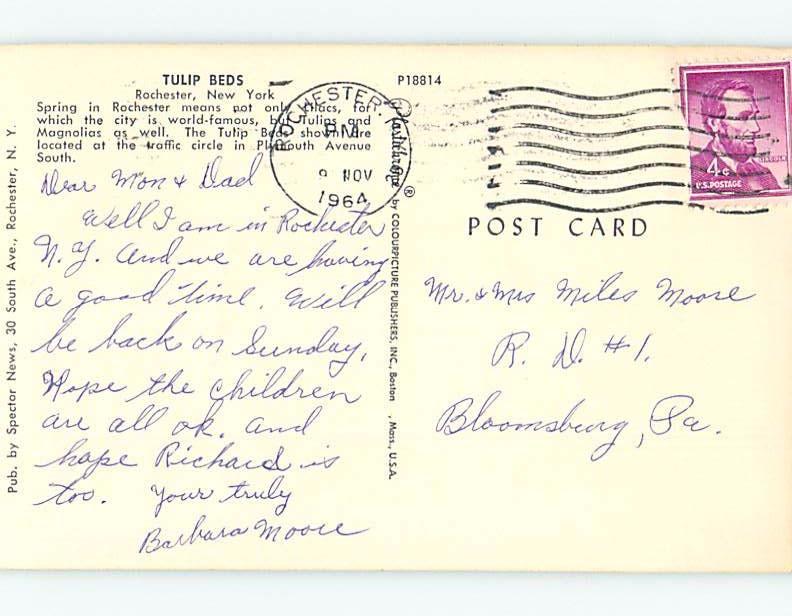 TULIP BEDS
Rochester, New York
Spring in Rochester means not only lilacs, for
which the city is world-famous, but Tulips and
Magnolias as well. The Tulip Beds shown are
located at the traffic circle in Plymouth Avenue
South.
Dear Mom & Dad
Well I am in Rochester
N.Y. and we are having
a good time. Will
be back on Sunday,
Hope the children
are all ok. and
hope Richard is
too. Your truly
Barbara Moore
Pub. by Spector News, 30 South Ave., Rochester, N. Y.
P18814
Plastichrome ® by COLOURPICTURE PUBLISHERS, INC., Boston , Mass., U.S.A.
ROCHESTER N.Y.
PM
9 NOV
1964
LINCOLN
4¢
U.S. POSTAGE
POST CARD
Mr. & Mrs Miles Moore
R. D. #1.
Bloomsburg, Pa.